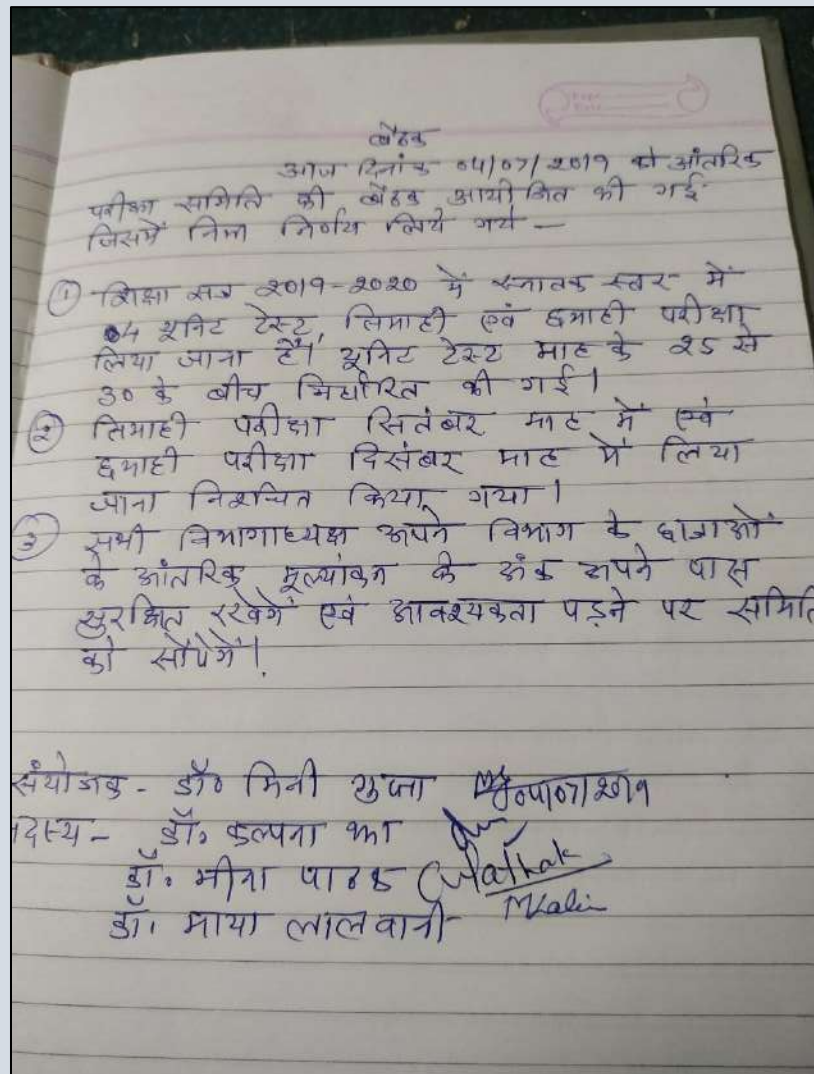 बैठक
आज दिनांक 04/07/2019 को आंतरिक
परीक्षा समिति की बैठक आयोजित की गई
जिसमें निम्न निर्णय लिये गये —
① शिक्षा सत्र 2019-2020 में स्नातक स्तर में
04 यूनिट टेस्ट, तिमाही एवं छमाही परीक्षा
लिया जाना है। यूनिट टेस्ट माह के 25 से
30 के बीच निर्धारित की गई।
② तिमाही परीक्षा सितंबर माह में एवं
छमाही परीक्षा दिसंबर माह में लिया
जाना निश्चित किया गया।
3 सभी विभागाध्यक्ष अपने विभाग के छात्राओं
के आंतरिक मूल्यांकन के अंक अपने पास
सुरक्षित रखेगें एवं आवश्यकता पड़ने पर समिति
को सौंपेगें।
संयोजक - डॉ० मिनी गुप्ता 04/07/2019
दस्य - डॉ. कल्पना झा
डॉ. मीना पाठक Pathak
डॉ. माया लालवानी